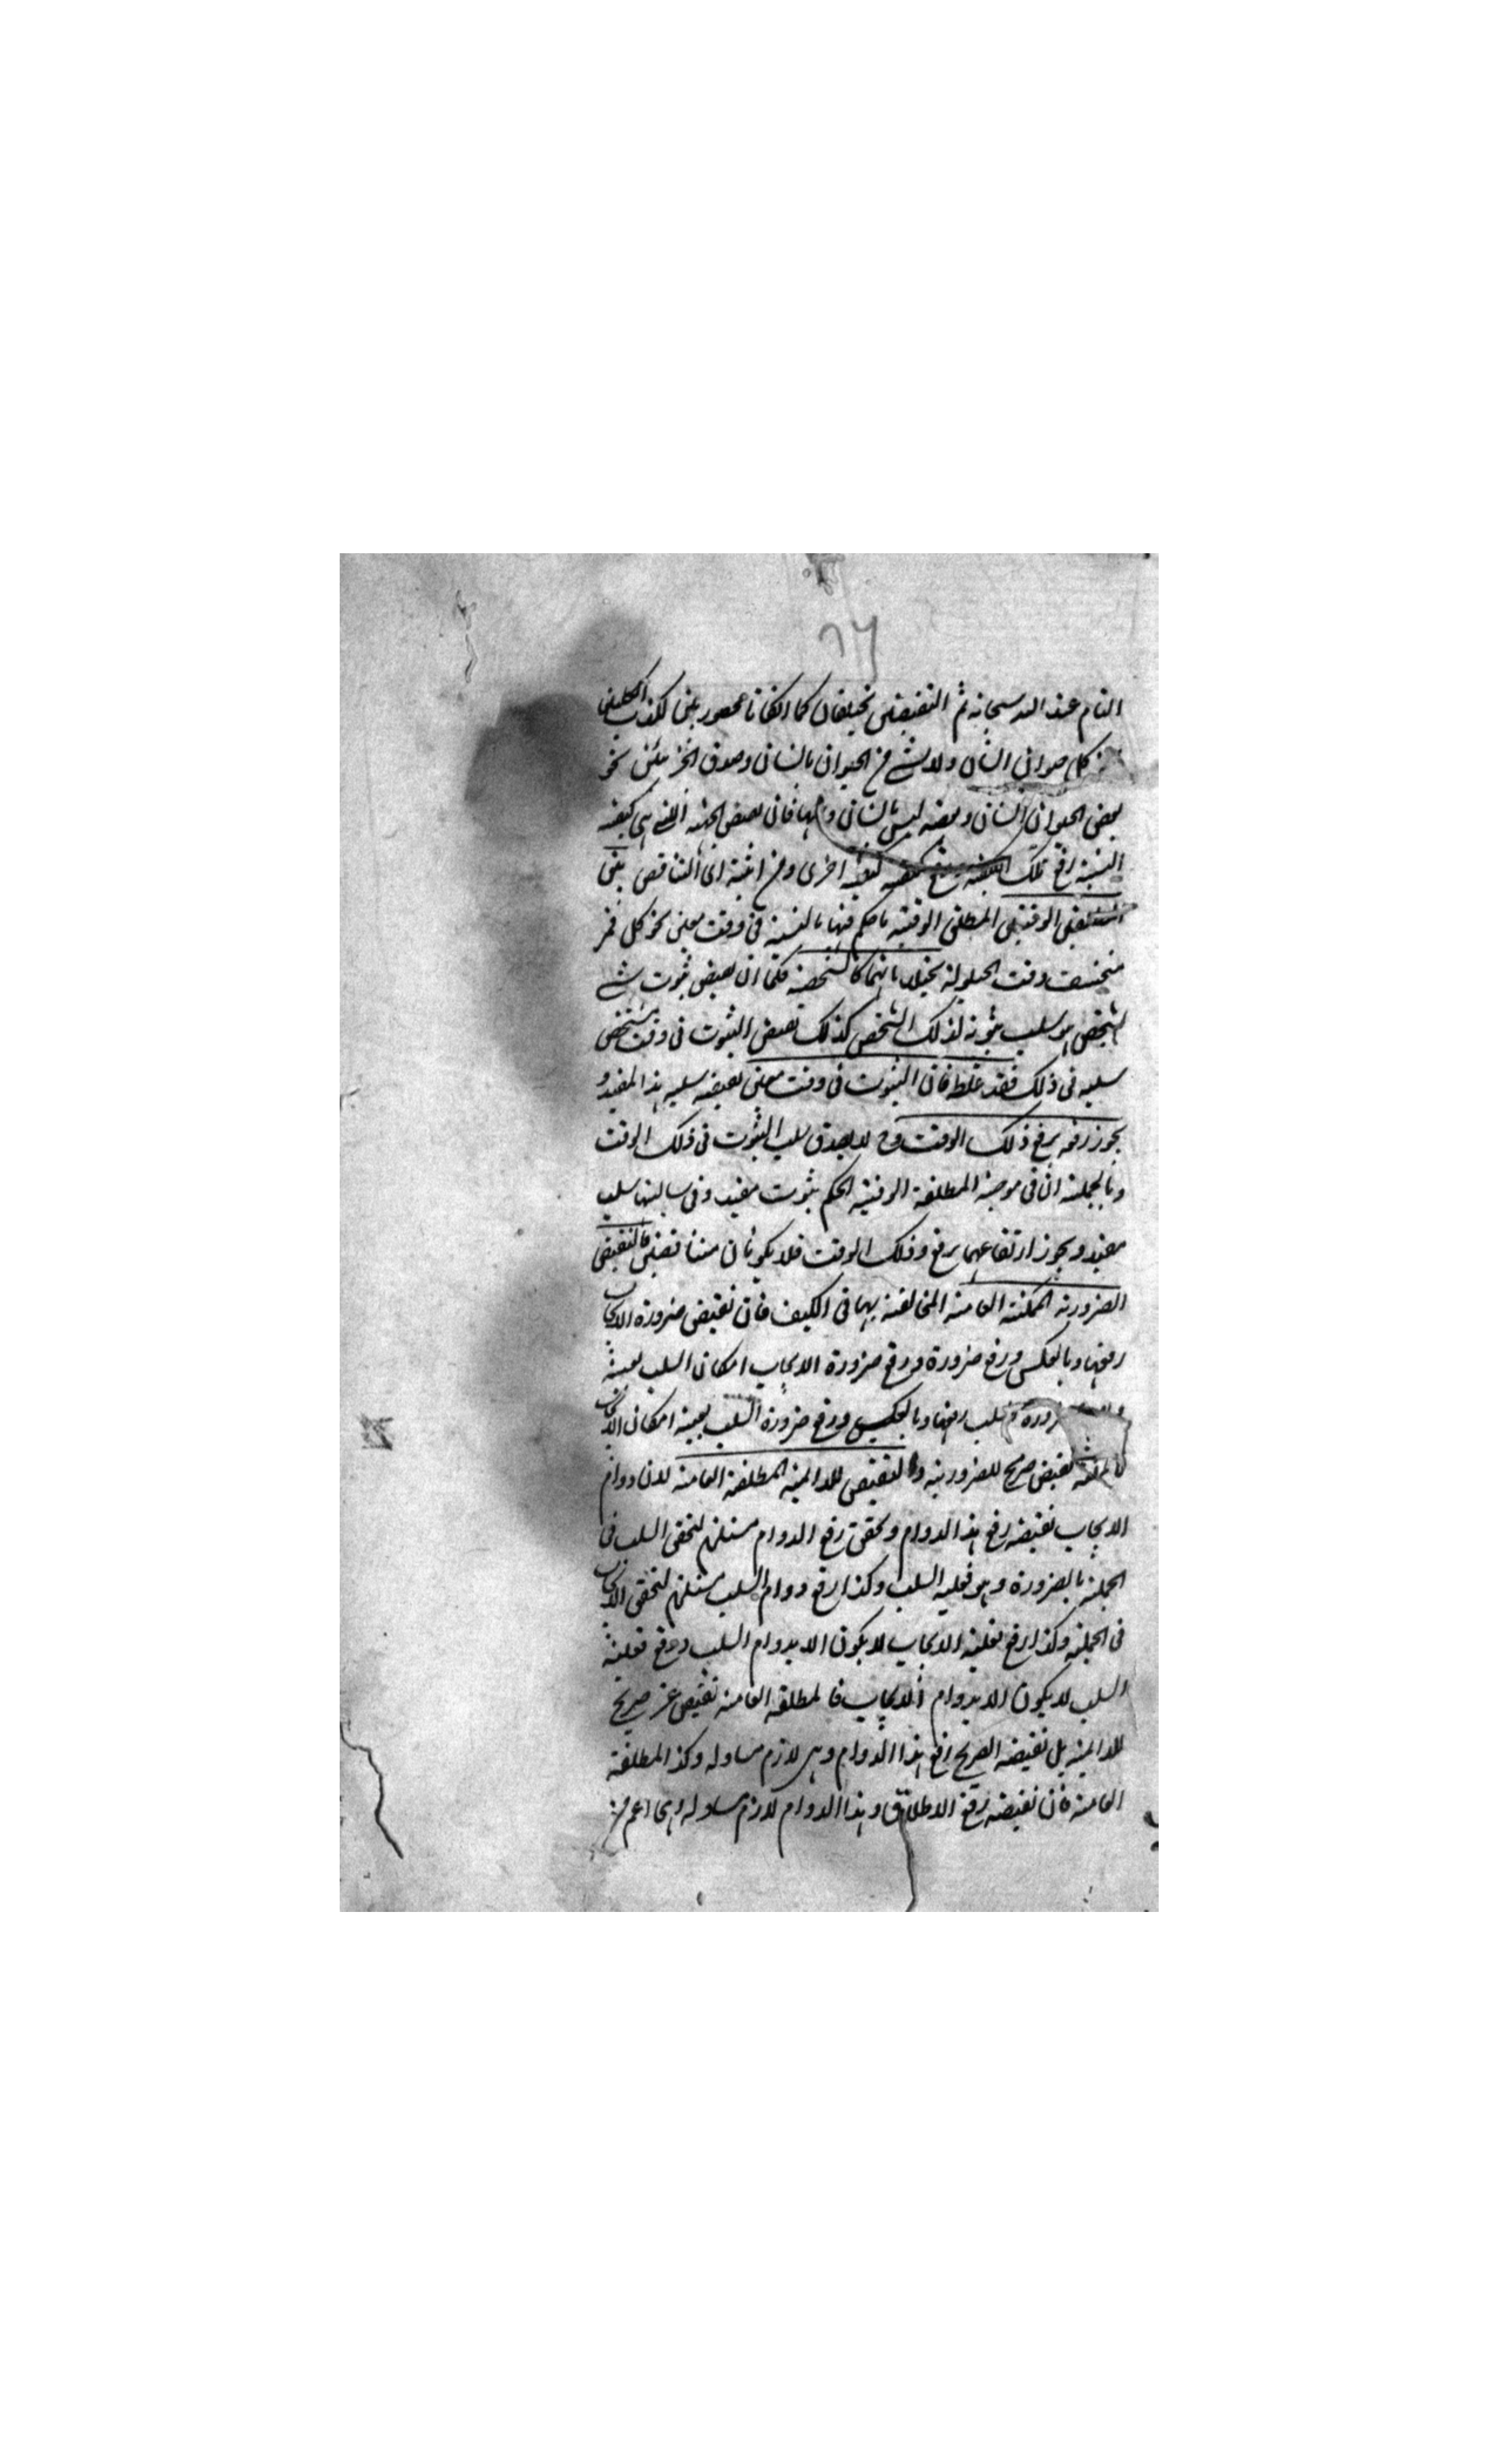 ٦٦
التام عند الله سبحانه ثم النقيضين يختلفان كما ان كانا محصورتين لكذب الكليتين
كل حيوان انسان ولا شئ من الحيوان بانسان وصدق الجزئيتين نحو
بعض الحيوان انسان وبعضه ليس بانسان و فان نقيض الجهة التى هى كيفية
النسبة رفع تلك الكيفية كيفية اخرى ومن اثبته اى التناقض بين
الوقتيتين المطلقتين الوقتية ما حكم فيها بالنسبة فى وقت معين نحو كل قمر
منخسف وقت الحيلولة تخيلا بانهما كالشخصية فكما ان نقيض ثبوت شئ
لشخص هو سلب ثبوته لذلك الشخص كذلك نقيض الثبوت فى وقت مشخص
سلبه فى ذلك فقد غلط فان الثبوت فى وقت معين نقيضه سلب هذا المقيد و
يجوز رفعه برفع ذلك الوقت وح لا يصدق سلب الثبوت فى ذلك الوقت
وبالجملة ان فى موجبة المطلقة الوقتية الحكم بثبوت مقيد وفى سالبتها سلب
مقيد ويجوز ارتفاعهما برفع ذلك الوقت فلا يكونان متناقضين فالنقيض
الضرورية الممكنة العامة المخالفة بها فى الكيف فان نقيض ضرورة الايجاب
رفعها وبالعكس ورفع ضرورة ورفع ضرورة الايجاب امكان السلب بعينه
ضرورة السلب رفعها وبالعكس ورفع ضرورة السلب بعينه امكان الايجاب
نقيض صريح للضرورية والنقيض للدائمة المطلقة العامة لان دوام
الايجاب نقيضه رفع هذا الدوام وتحقق رفع الدوام مستلزم لتحقق السلب فى
الجملة بالضرورة وهو فعلية السلب وكذا رفع دوام السلب مستلزم لتحقق الايجاب
فى الجملة وكذا رفع فعلية الايجاب لا يكون الا بدوام السلب ورفع فعلية
السلب لا يكون الا بدوام الايجاب فالمطلقة العامة نقيض غير صريح
للدائمة بل نقيضه الصريح رفع هذا الدوام وهى لازم مساو له وكذا المطلقة
العامة فان نقيضه رفع الاطلاق وهذا الدوام لازم مساو له اعم من